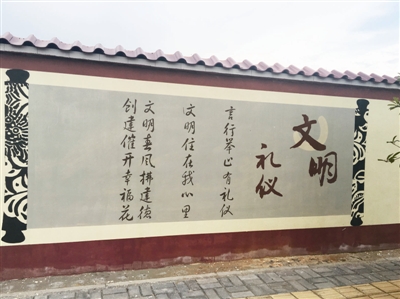 文明
礼仪
言行举止有礼仪
文明住在我心里
文明春风拂建德
创建催开幸福花